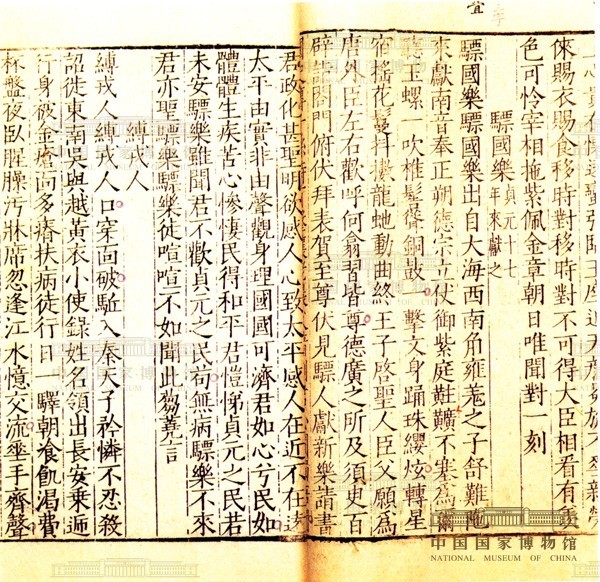 倈賜衣賜食移時對移時對不可得大臣相看有羨
色可憐宰相拖紫佩金章朝日唯聞對一刻
驃國樂 貞元十七年來獻之
驃國樂驃國樂出自大海西南角雍羌之子舒難陁
來獻南音奉正朔德宗立仗御紫庭黈纊不塞為
玉螺一吹椎髻聳銅鼓一擊文身踊珠纓炫轉星
宿搖花鬘抖擻龍虵動曲終王子啓聖人臣父願為
唐外臣左右歡呼何翕習皆尊德廣之所及須臾百
辟詣閤門俯伏拜表賀至尊伏見驃人獻新樂請書
君政化甚聖明欲感人心致太平感人在近不在遠
太平由實非由聲觀身理國國可濟君如心兮民如
體體生疾苦心慘悽民得和平君愷悌貞元之民若
未安驃樂雖聞君不歡貞元之民苟無病驃樂不來
君亦聖驃樂驃樂徒喧喧不如聞此芻蕘言
縛戎人
縛戎人縛戎人口穿面破驅入秦天子矜憐不忍殺
詔徙東南吳與越黃衣小使錄姓名領出長安乘遞
行身被金瘡面多瘠扶病徒行日一驛朝飡飢渴費
杯盤夜臥腥臊汚牀席忽逢江水憶交流垂手齊聲
中国国家博物馆
NATIONAL MUSEUM OF CHINA